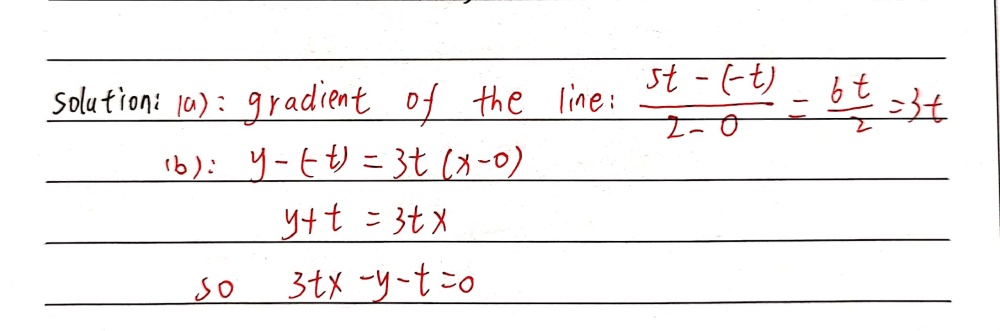 Solution: (a): gradient of the line: \frac{5t - (-t)}{2 - 0} = \frac{6t}{2} = 3t
(b): y - (-t) = 3t (x - 0)
y + t = 3tx
so 3tx - y - t = 0